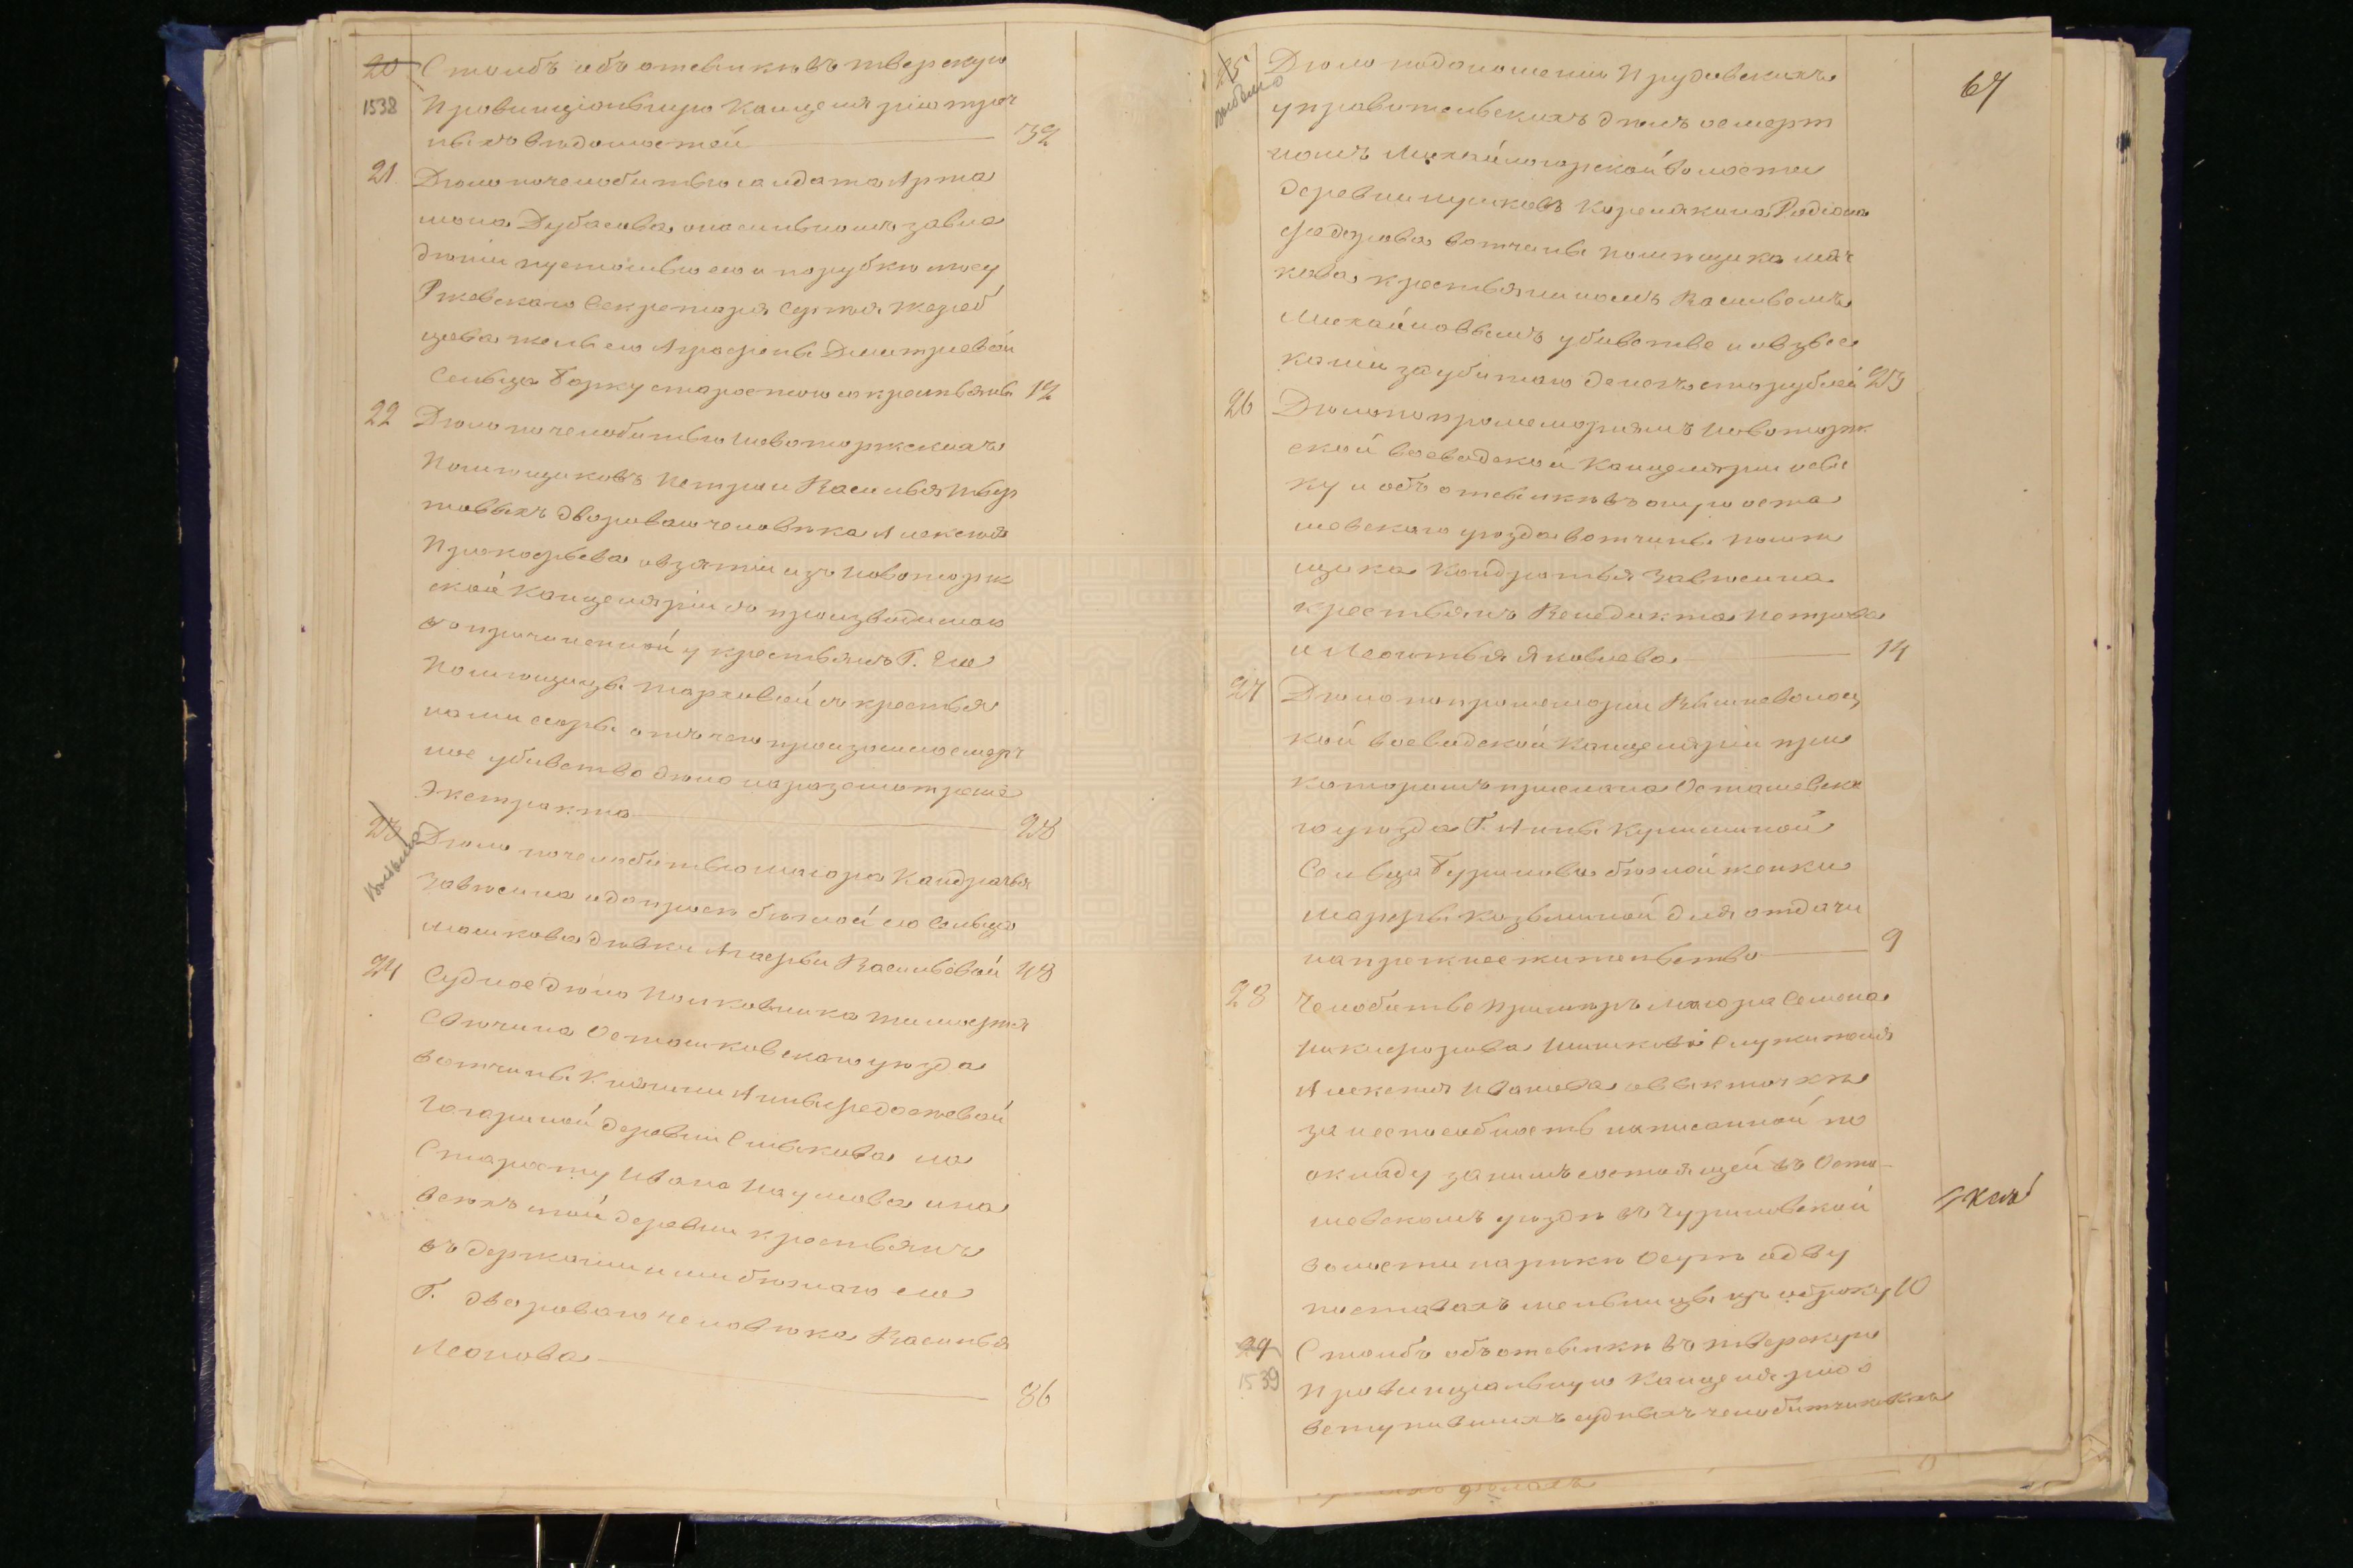 20 Столбъ объ отсылкѣ въ тверскую
1538 Провинціальную Канцелярію проч
ныхъ вѣдомостей 32
21 Дѣло по челобитью солдата Арта
мона Дубасова, о насильномъ завла
дѣніи пустошью его и порубкѣ лесу
Ржевскаго Секретаря Сергѣя Жереб
цова жены его Аграфены Дмитріевой
Сельца Борку старостою со крестьяны 12
22 Дѣло по челобитью Новоторжскихъ
Помѣщиковъ Петра и Василья Твер
товыхъ двороваго человѣка Алексѣя
Прокофьева о взятіи изъ Новоторж
ской Канцеляріи производимаго
о причиненной у крестьянъ Г. Ею
Помѣщицы съ крестья
нами ссоры отъ чего произошло смерт
ное убивство дѣла на разсмотреніе
Экстракта 28
23 Дѣло по челобитью маіора Кондратья
выбыло Завѣсина о допросѣ бѣглой его Сельца
Машкова дѣвки Агафьи Васильевой 48
24 Судное дѣло Полковника Тимофѣя
Свѣчина Осташковскаго уѣзда
вотчины Княгини Анны Федосѣевой
Гагариной деревни на
Старосту Ивана Наумова и на
всѣхъ той деревни крестьянъ
въ держаніи ими бѣглаго его
Г. двороваго человѣка Василья
Леонова 86
67
25 Дѣло по доношенію Прудовскихъ
выбыло управительскихъ дѣлъ о смерт
номъ Михайлогорской волости
деревни Корелякина Родіона
Федорова вотчины помѣщика Мяч
кова крестьяниномъ Васильемъ
Михайловымъ убивстве и о взыс
каніи за убитаго денегъ сто рублей 23
26 Дѣло по промеморіямъ Новоторж
ской воеводской Канцеляріи о сыс
ку и объ отсылкѣ въ оную оста
шевскаго уѣзда вотчины помѣ
щика Кондратья Завѣсина
крестьянъ Венедикта Петрова
и Леонтья Яковлева 14
27 Дѣло по промеморіи Вышневолоц
кой воеводской Канцеляріи при
которомъ прислана Осташевска
го уѣзда Г. Анны Курилиной
Сельца бѣглой женки
Марфы Козьминой для отдачи
на прежнее жительство 9
28 Челобитье Примѣръ Маіора Семена
Никифорова Шишкова Служителя
Алексѣя Иванова о выключкѣ
за неспособность написанной по
окладу за нимъ состоящей въ Оста-
шевскомъ уѣздѣ въ
волости на рѣкѣ о дву
поставахъ мельницы изъ оброку 10
29 Столбъ объ отсылкѣ въ тверскую
1539 Провинціальную Канцелярію о
вступившихъ судныхъ челобитчиковыхъ